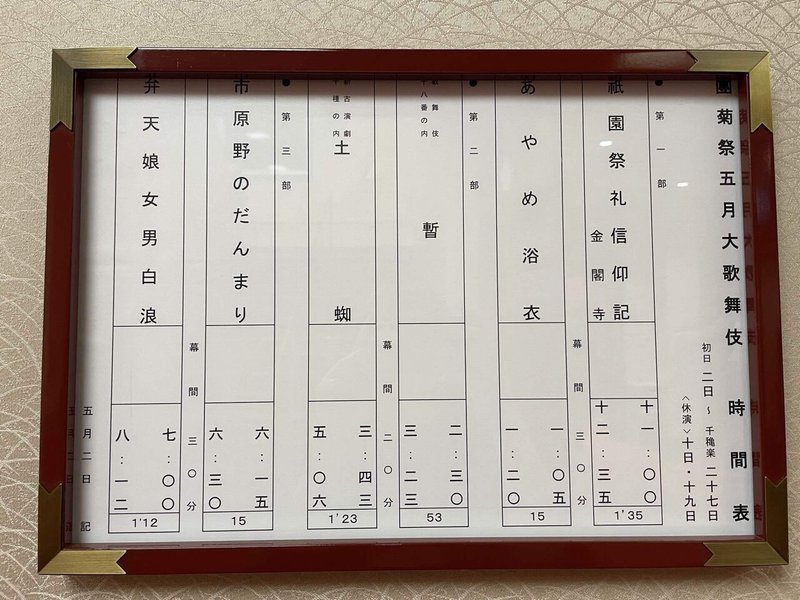 團菊祭五月大歌舞伎　時間表
初日　二日　～　千穐楽　二十七日
＜休演＞十日・十九日
●　第一部
祇園祭礼信仰記
金閣寺
十一：〇〇
十二：三五
1'35
幕間　三〇分
あやめ浴衣
一：〇五
一：二〇
15
●　第二部
歌舞伎
十八番の内
暫
二：三〇
三：二三
53
幕間　二〇分
新古演劇
十種の内
土蜘
三：四三
五：〇六
1'23
●　第三部
市原野のだんまり
六：一五
六：三〇
15
幕間　三〇分
弁天娘女男白浪
七：〇〇
八：一二
1'12
五月二日　記